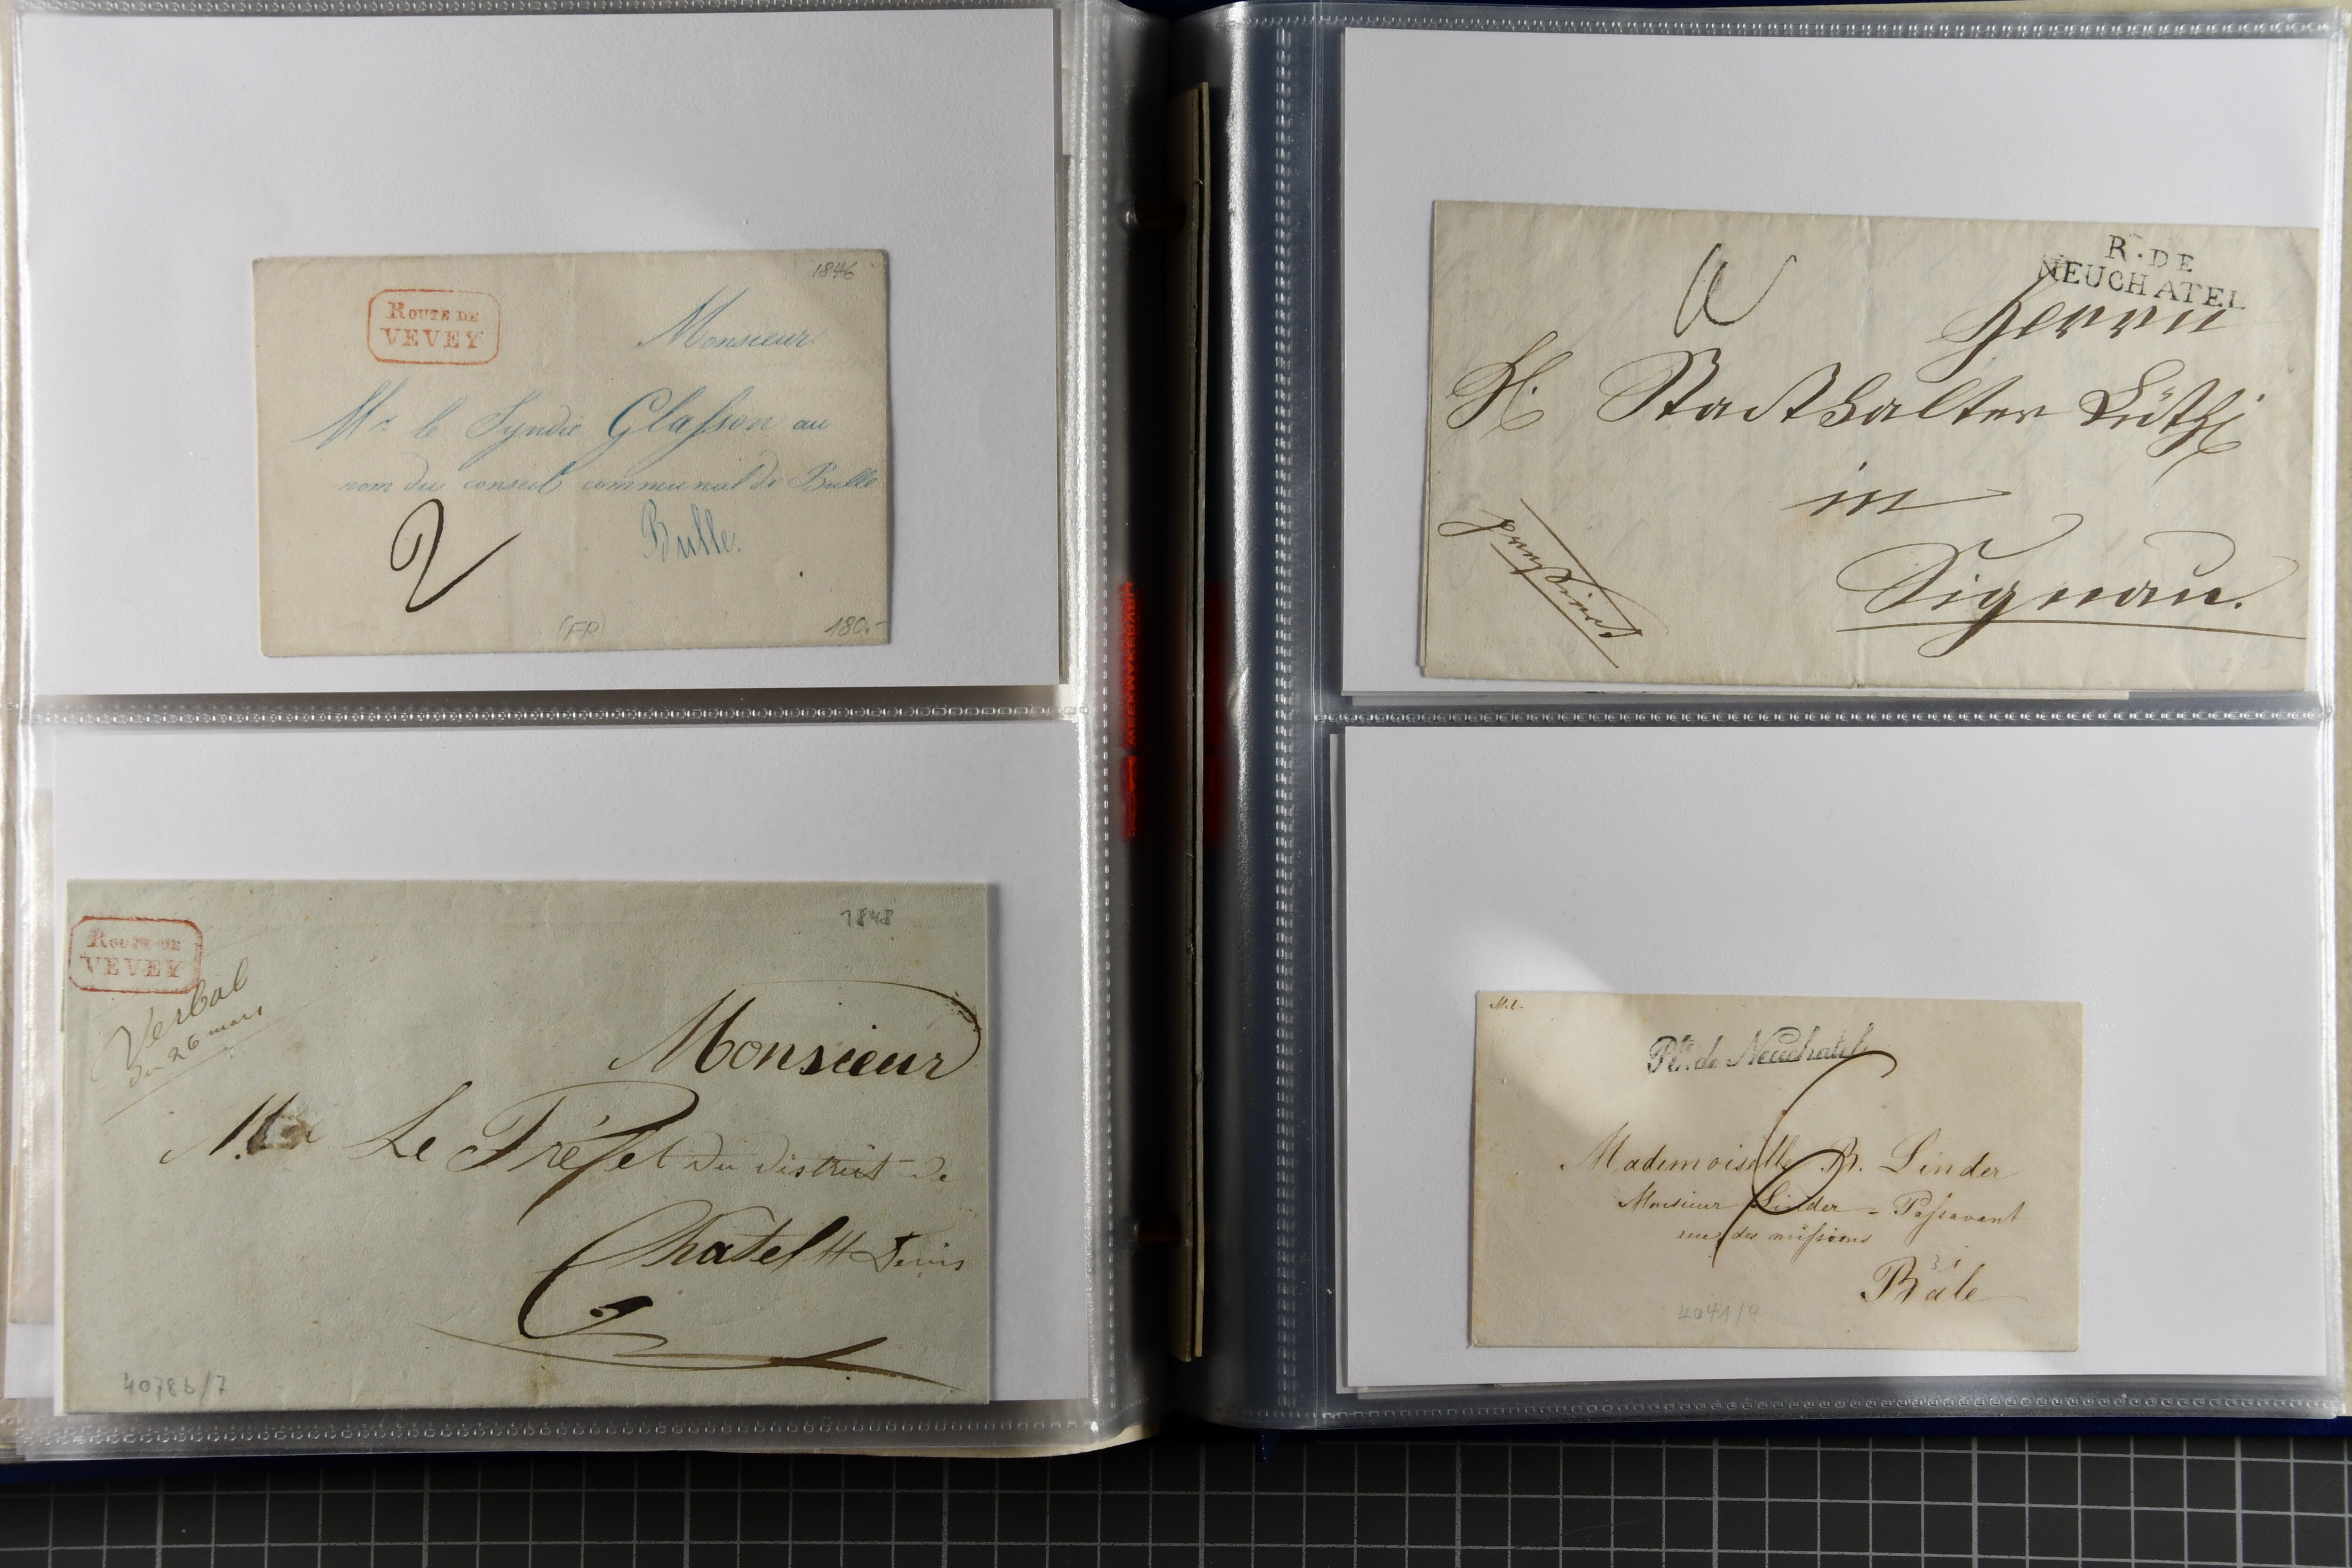 1846
ROUTE DE
VEVEY
Monsieur
Mr le Syndic Glasson au
nom du conseil communal de Bulle
Bulle.
2
(FR)
180.-
1848
ROUTE DE
VEVEY
Verbal
du 26 mars
Monsieur
Le Préfet du district de
Chatel St Denis
4078b/7
R. DE
NEUCHATEL
Herrn
H. Statthalter Lüthi
in
Signau.
Rte. de Neuchatel
6
Mademoiselle R. Linder
Monsieur Linder = Passavant
rue des missions
Bâle
4041/9